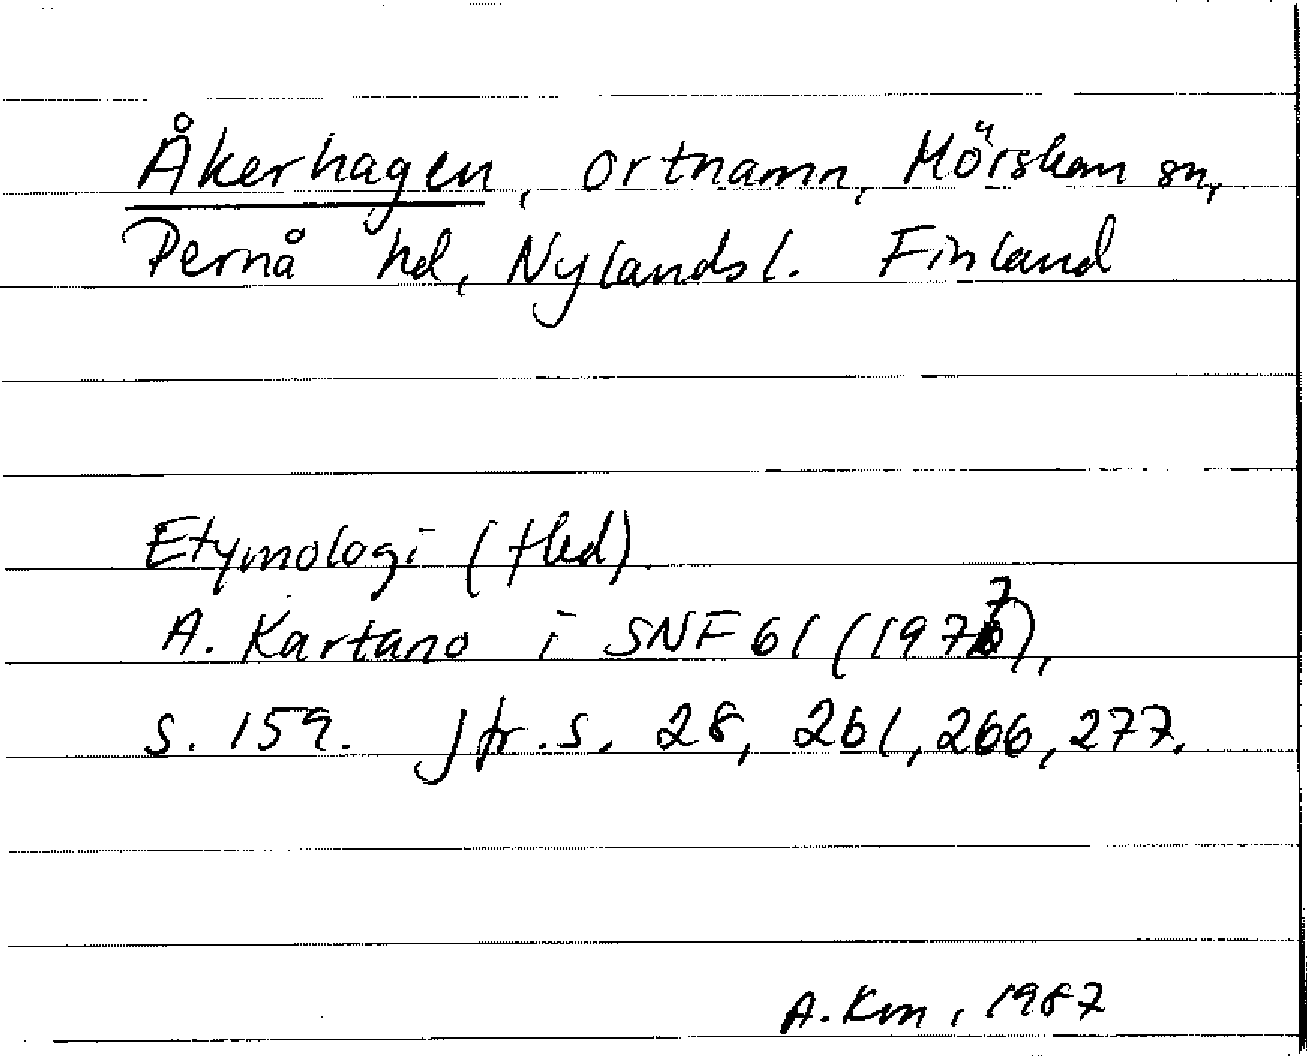 Åkerhagen, ortnamn, Mörskom sn,
Pernå hd, Nylands l. Finland
Etymologi (fled).
A. Kartano i SNF 61 (1977),
s. 159. Jfr. s. 28, 261, 266, 277.
A. Km, 1987